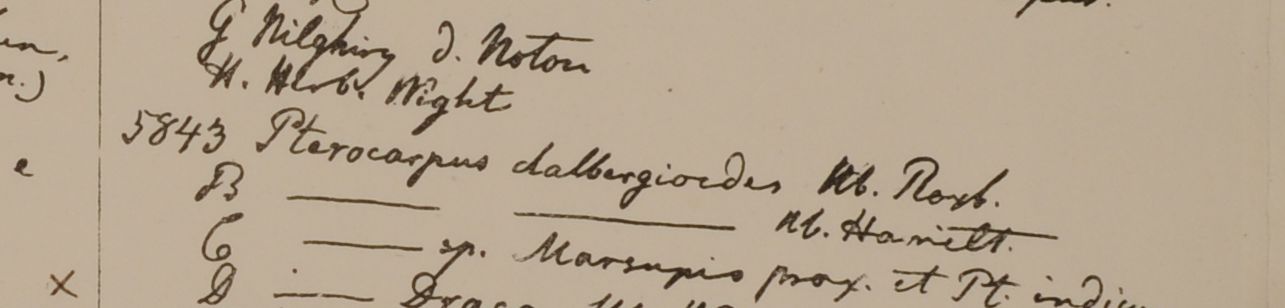 G Nilghiry D. Noton
H. Herb. Wight
5843 Pterocarpus dalbergioides Hb. Roxb.
B ——— ——— Hb. Hamilt.
C ——— sp. Marsupio prox. et Pt. indic
D ——— Draco
e
x